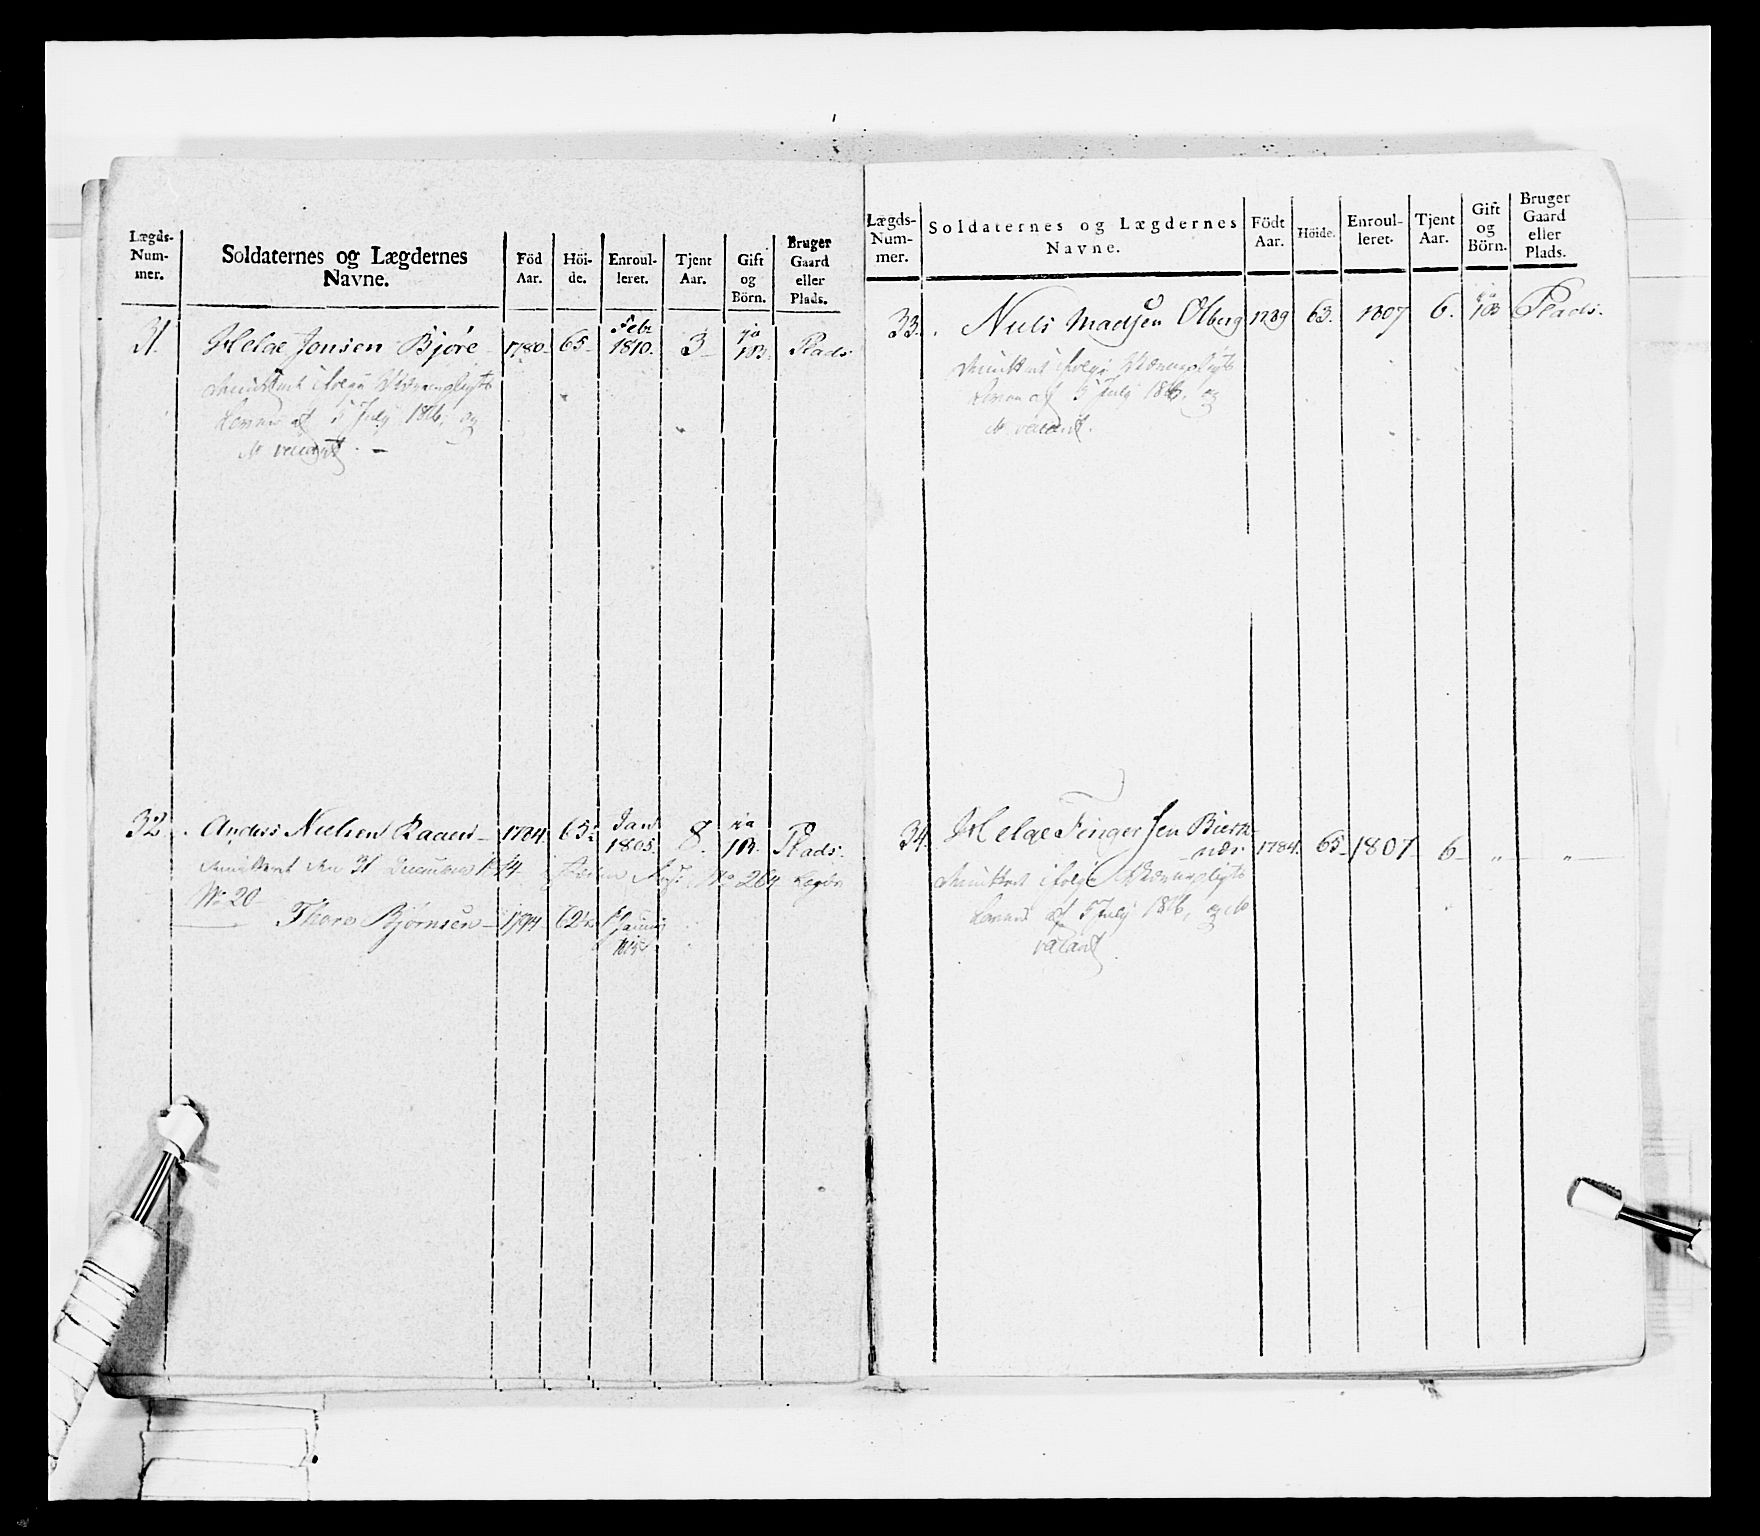 Lægds-Num-mer. Soldaternes og Lægdernes Navne. Föd Aar. Höi-de. Enroul-leret. Tjent Aar. Gift og Börn. Bruger Gaard eller Plads.
31. Helge Jonsen Bjøre 1780. 65. Febr 1810. 3 ja 1B. Plads.
dimitteret ifølge Værnepligts
Loven af 5 July 1816, og
No vacant. –
32. Anders Nielsen Raaen 1784 65 Jan 1805. 8. ja 1B. Plads.
dimitteret den 31 December 1814 No 264
No 20
Thore Björnsen 1794. 62½
Lægds-Num-mer. Soldaternes og Lægdernes Navne. Födt Aar. Höide. Enroul-leret. Tjent Aar. Gift og Börn. Bruger Gaard eller Plads.
33. Niels Madsen Olberg 1789 63. 1807 6. ja 1B Plads.
dimitteret ifølge Værnepligts
Loven af 5 July 1816, og
No vacant.
34. Helge Fingersen Bierk
næs 1784. 65 1807 6 „ „
dimitteret ifølge Værnepligts
Loven af 5 July 1816, og No
vacant